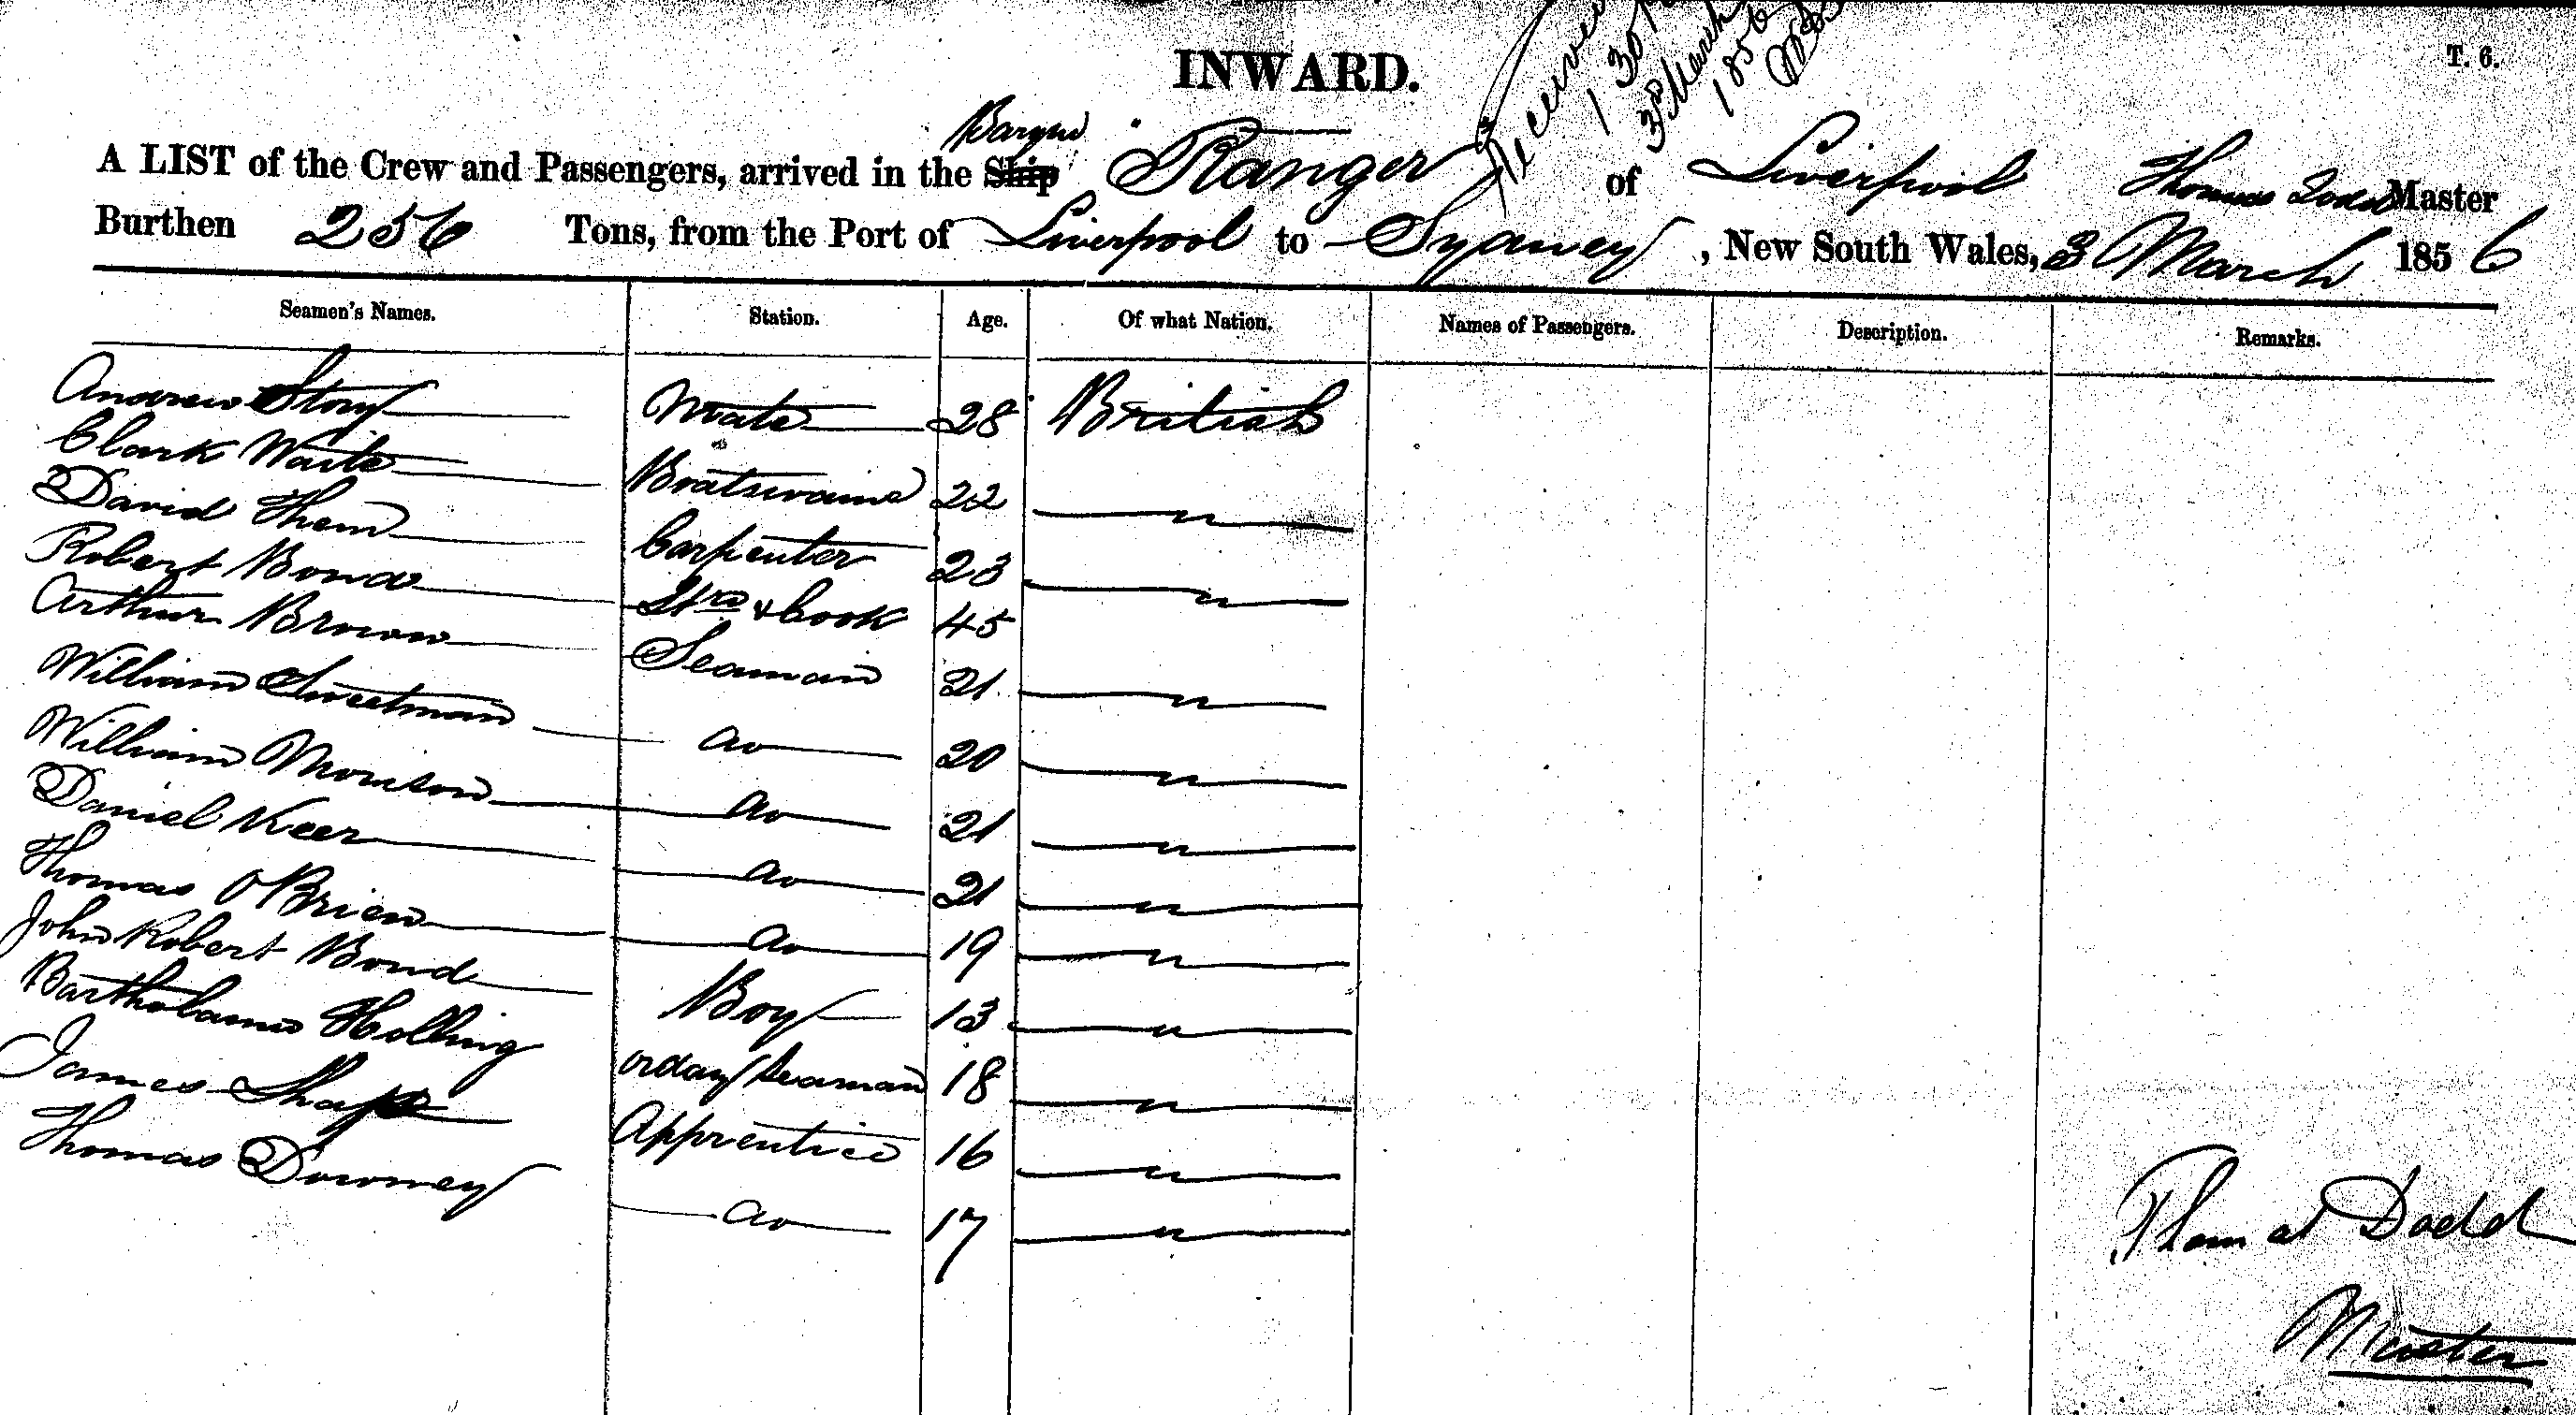 INWARD.
T. 6.
1 30
3rd March
1856
Barque
A LIST of the Crew and Passengers, arrived in the Ship "Ranger" of Liverpool Thomas Dodd Master
Burthen 256 Tons, from the Port of Liverpool to Sydney, New South Wales, 3 March 1856
Seamen's Names. Station. Age. Of what Nation. Names of Passengers. Description. Remarks.
Andrew Story Mate 28 British
Clark Waite Boatswain 22 "
David Them Carpenter 23 "
Robert Bond Stwd & Cook 45
Arthur Brown Seaman 21 "
William Sweetman do 20 "
William Morrison do 21 "
Daniel Keer do 21 "
Thomas O'Brien do 19 "
John Robert Bond Boy 13 "
Bartholamew Holling orday Seaman 18 "
James Sharp Apprentice 16 "
Thomas Downey do 17 "
Thomas Dodd
Master